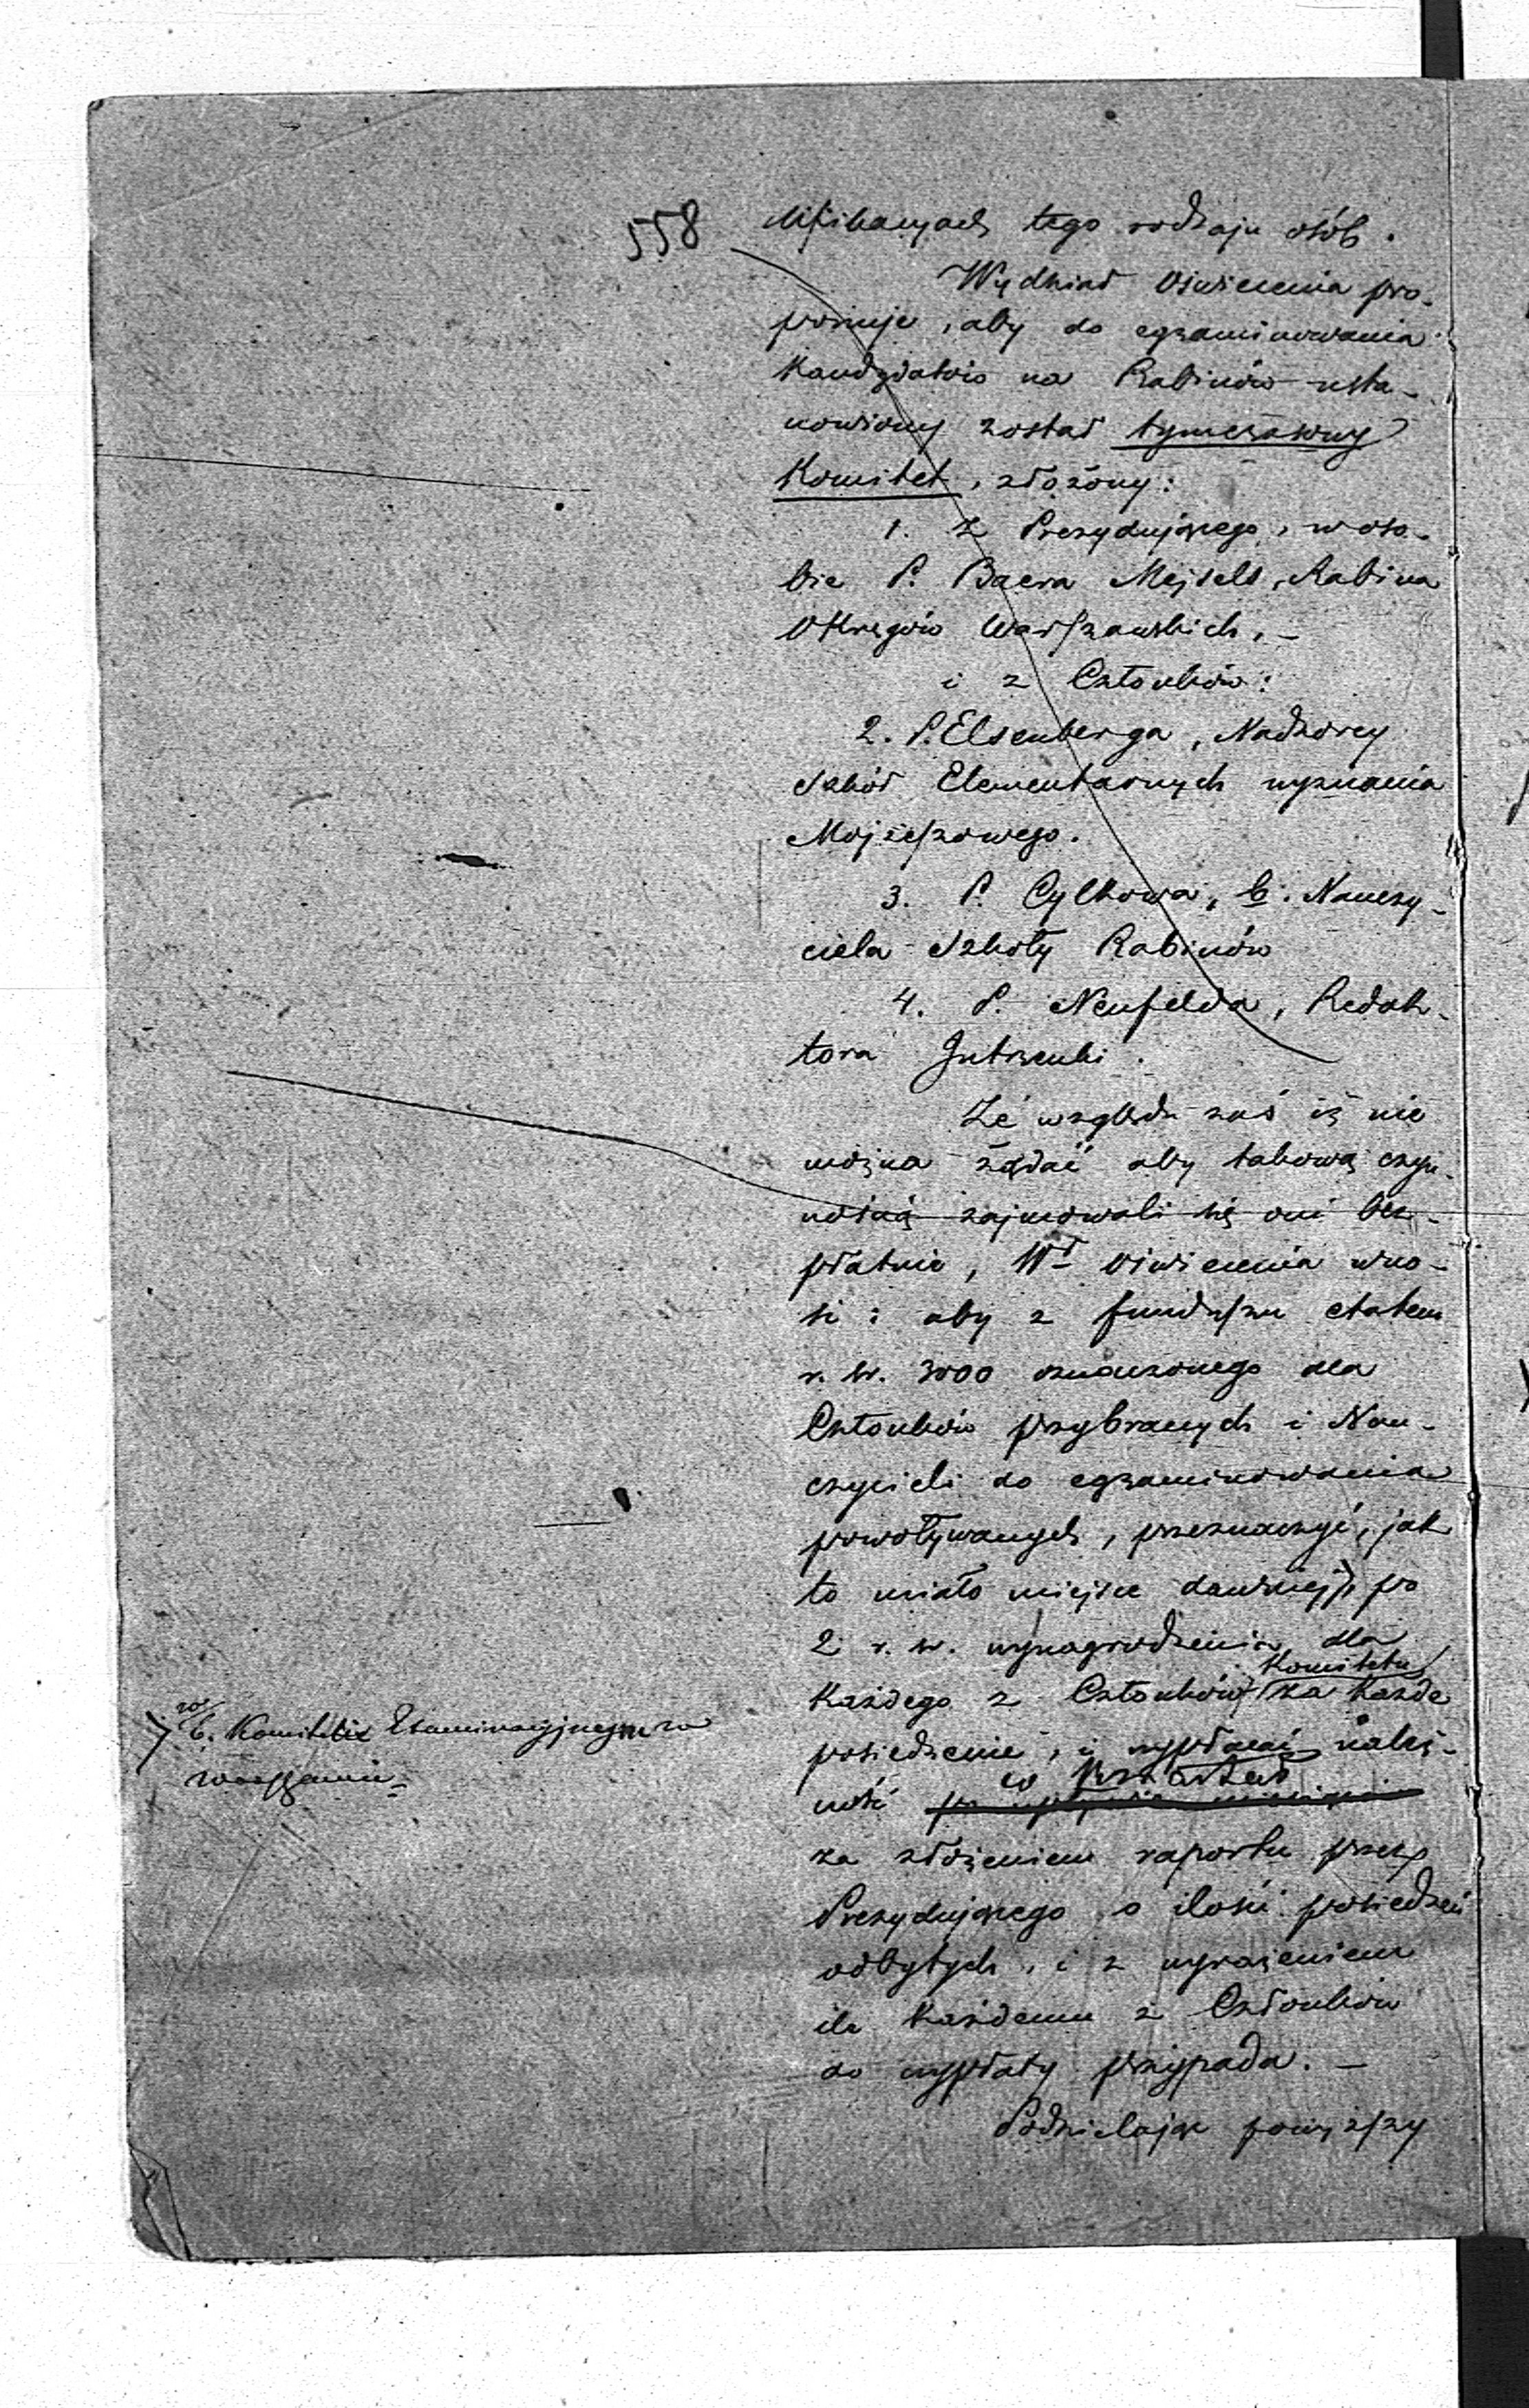 558
lifikacyach tego rodzaju osób.
Wydział Oświecenia pro-
ponuje, aby do egzaminowania
Kandydatów na Rabinów usta-
nowiony został tymczasowy
Komitet, złożony:
1. Z Prezydującego, w oso-
bie P. Baera Mejsels, Rabina
Okręgów Warszawskich, –
i z Członków:
2. P. Elsenberga, Nadzorcy
Szkół Elementarnych wyznania
Mojżeszowego.
3. P. Cylkowa, b. Nauczy-
ciela Szkoły Rabinów
4. P. Neufelda, Redak-
tora Jutrzenki.
Ze względu zaś iż nie
można żądać aby takową czyn-
nością zajmowali się oni bez-
płatnie, Wł Oświecenia wno-
si: aby z funduszu etatem
r. sr. 3000 oznaczonego dla
Członków przybranych i Nau-
czycieli do egzaminowania
powoływanych, przeznaczyć, jak
to miało miejsce dawniej, po
2 r. sr. wynagrodzenia, dla
Komitetu
Każdego z Członków za każde
posiedzenie, i wypłacać należ-
co
ność
za złożeniem raportu przez
Prezydującego o ilości posiedzeń
odbytych, i z wyrażeniem
ile Każdemu z Członków
do wypłaty przypada. –
Podzielając powyższy
w b. Komitecie Examinacyjnym w
Warszawie